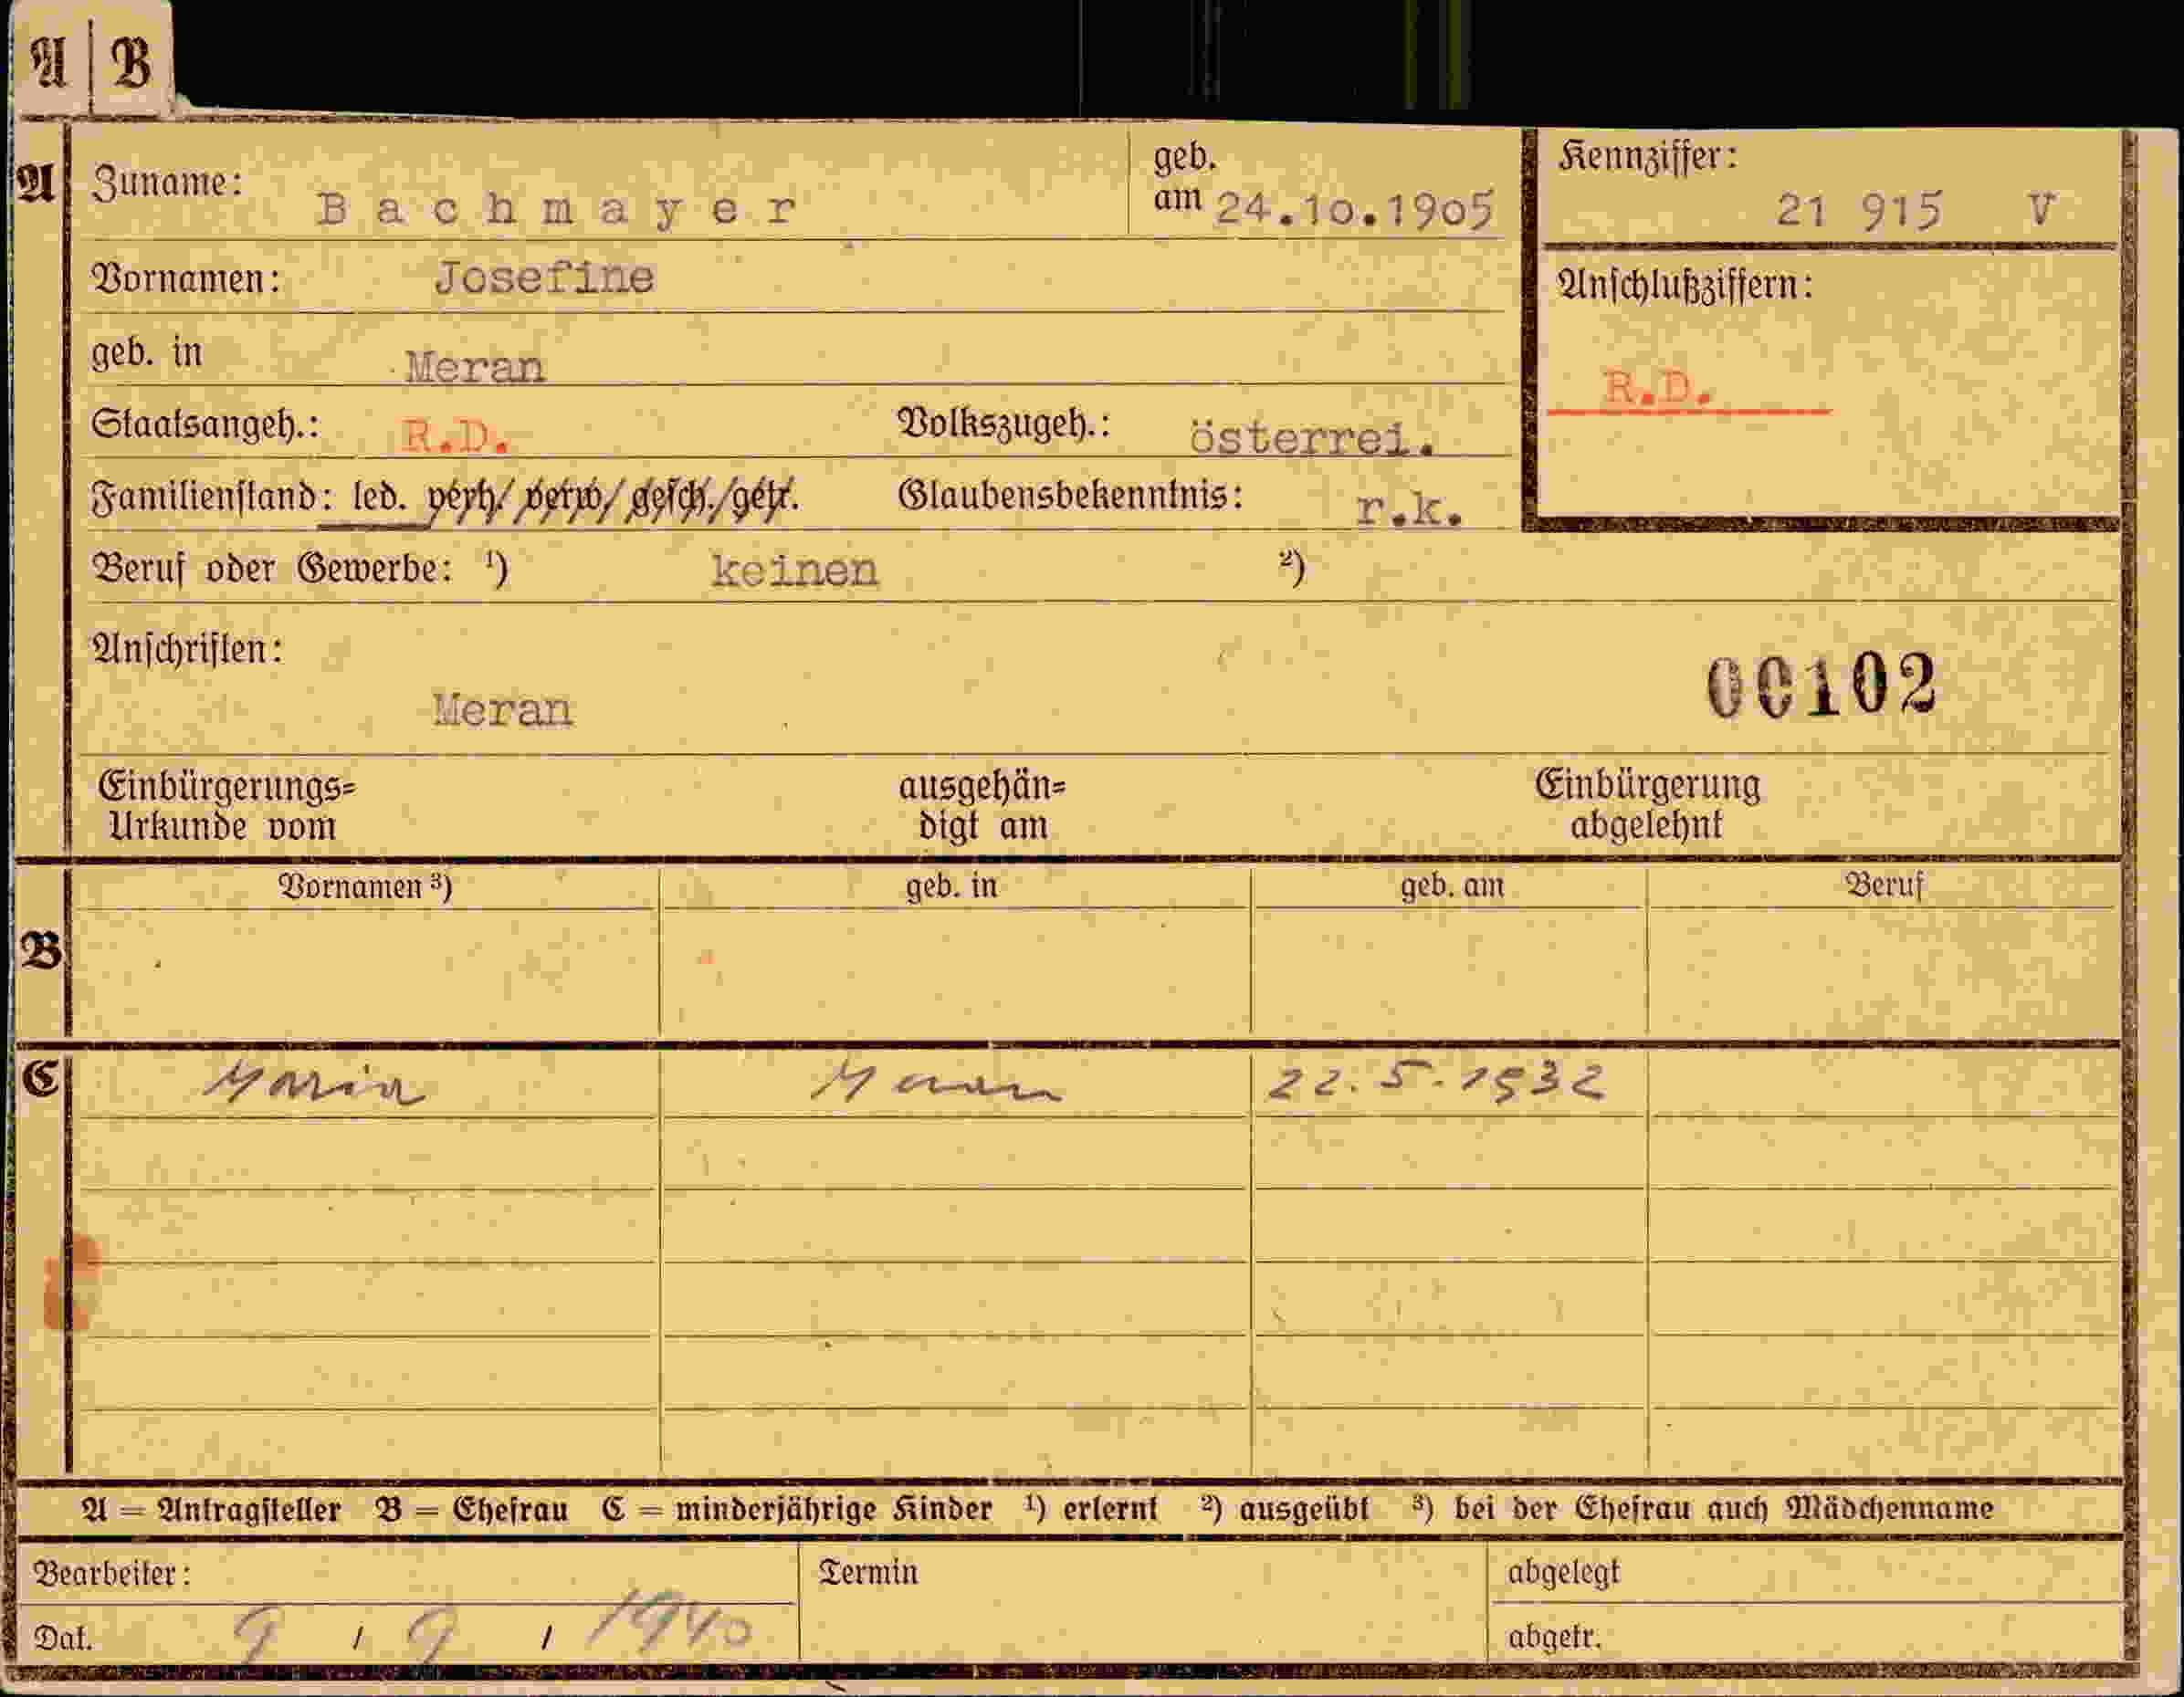 A | B
A Zuname: Bachmayer geb. am 24.10.1905 Kennziffer: 21 915 V
Vornamen: Josefine Anschlußziffern:
geb. in Meran R.D.
Staatsangeh.: R.D. Volkszugeh.: österrei.
Familienstand: led. verh./verw/gesch./getr. Glaubensbekenntnis: r.k.
Beruf oder Gewerbe: ¹) keinen ²)
Anschriften:
Meran 00102
Einbürgerungs= ausgehän= Einbürgerung
Urkunde vom digt am abgelehnt
Vornamen ³) geb. in geb. am Beruf
B
C Maria Meran 22.5.1932
A = Antragsteller B = Ehefrau C = minderjährige Kinder ¹) erlernt ²) ausgeübt ³) bei der Ehefrau auch Mädchenname
Bearbeiter: Termin abgelegt
Dat. 9 / 9 / 1940 abgetr.